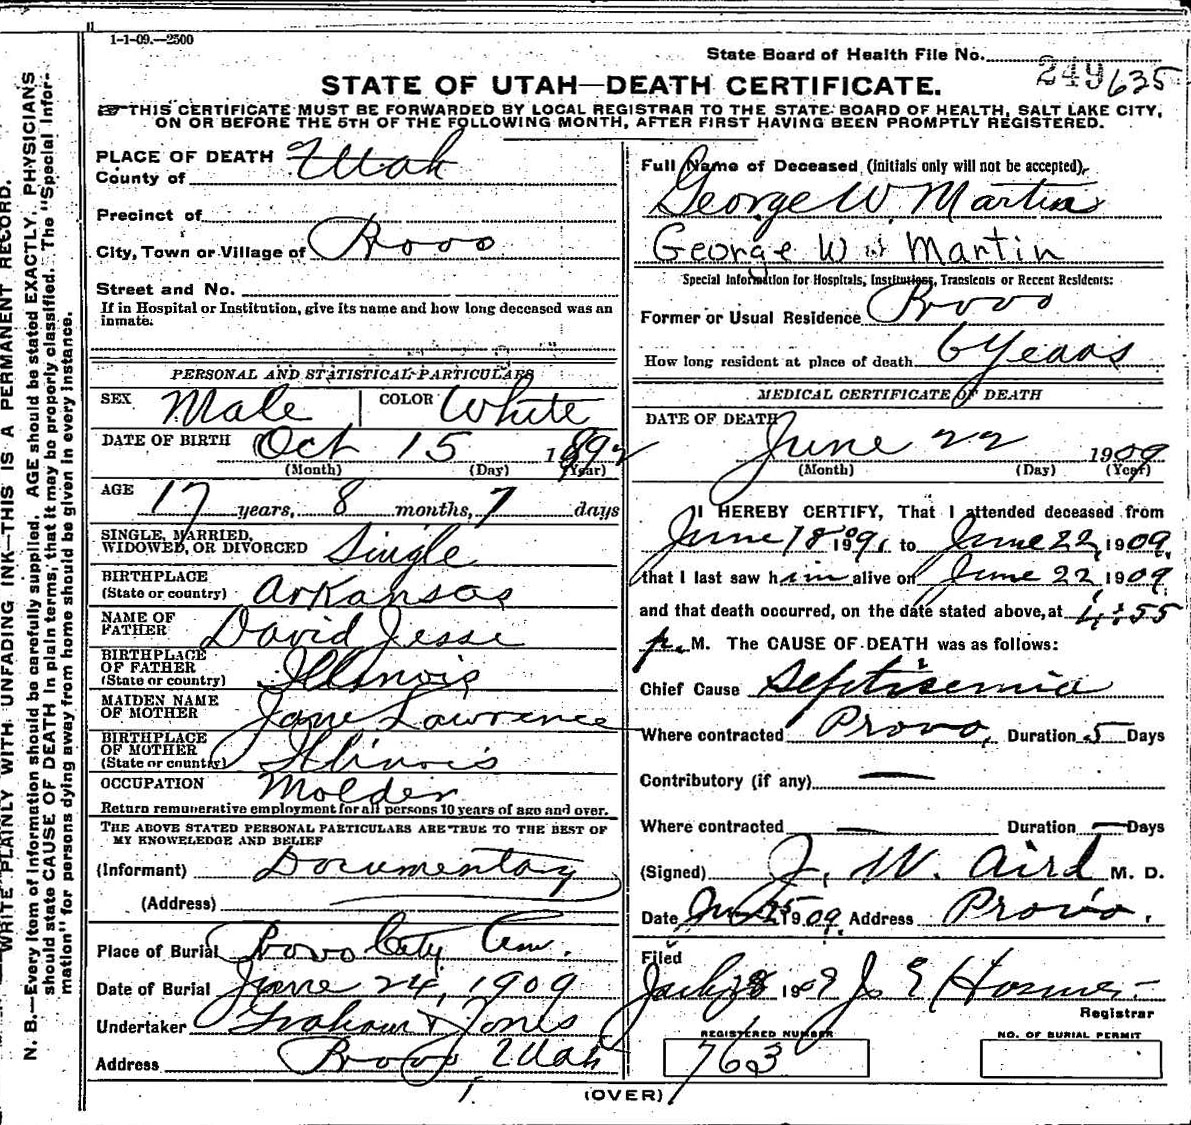 1-1-09.—2500
State Board of Health File No. 249 635
STATE OF UTAH—DEATH CERTIFICATE.
THIS CERTIFICATE MUST BE FORWARDED BY LOCAL REGISTRAR TO THE STATE BOARD OF HEALTH, SALT LAKE CITY,
ON OR BEFORE THE 5TH OF THE FOLLOWING MONTH, AFTER FIRST HAVING BEEN PROMPTLY REGISTERED.
WRITE PLAINLY WITH UNFADING INK—THIS IS A PERMANENT RECORD.
N. B.—Every item of information should be carefully supplied. AGE should be stated EXACTLY. PHYSICIANS
should state CAUSE OF DEATH in plain terms, that it may be properly classified. The "Special Infor-
mation" for persons dying away from home should be given in every instance.
PLACE OF DEATH
County of Utah
Precinct of
City, Town or Village of Provo
Street and No.
If in Hospital or Institution, give its name and how long deceased was an
inmate.
PERSONAL AND STATISTICAL PARTICULARS
SEX Male COLOR White
DATE OF BIRTH Oct 15 1892
(Month) (Day) (Year)
AGE
17 years, 8 months, 7 days
SINGLE, MARRIED,
WIDOWED, OR DIVORCED Single
BIRTHPLACE
(State or country) Arkansas
NAME OF
FATHER David Jesse
BIRTHPLACE
OF FATHER
(State or country) Illinois
MAIDEN NAME
OF MOTHER Jane Lawrence
BIRTHPLACE
OF MOTHER
(State or country) Illinois
OCCUPATION Molder
Return remunerative employment for all persons 10 years of age and over.
THE ABOVE STATED PERSONAL PARTICULARS ARE TRUE TO THE BEST OF
MY KNOWLEDGE AND BELIEF
(Informant) Documentary
(Address)
Place of Burial Provo City Cem.
Date of Burial June 24, 1909
Undertaker Graham & Jones
Address Provo Utah
Full Name of Deceased (initials only will not be accepted),
George W. Martin
George W Martin
Special Information for Hospitals, Institutions, Transients or Recent Residents:
Former or Usual Residence Provo
How long resident at place of death 6 Years
MEDICAL CERTIFICATE OF DEATH
DATE OF DEATH
June 22 1909
(Month) (Day) (Year)
I HEREBY CERTIFY, That I attended deceased from
June 18 1909, to June 22, 1909,
that I last saw him alive on June 22 1909
and that death occurred, on the date stated above, at 4:55
p. M. The CAUSE OF DEATH was as follows:
Chief Cause Septisemia
Where contracted Provo, Duration 5 Days
Contributory (if any) —
Where contracted — Duration — Days
(Signed) J. W. Aird M. D.
Date 25 1909, Address Provo,
Filed
28 190 J. E. Hosmer
Registrar
REGISTERED NUMBER
763
NO. OF BURIAL PERMIT
(OVER)